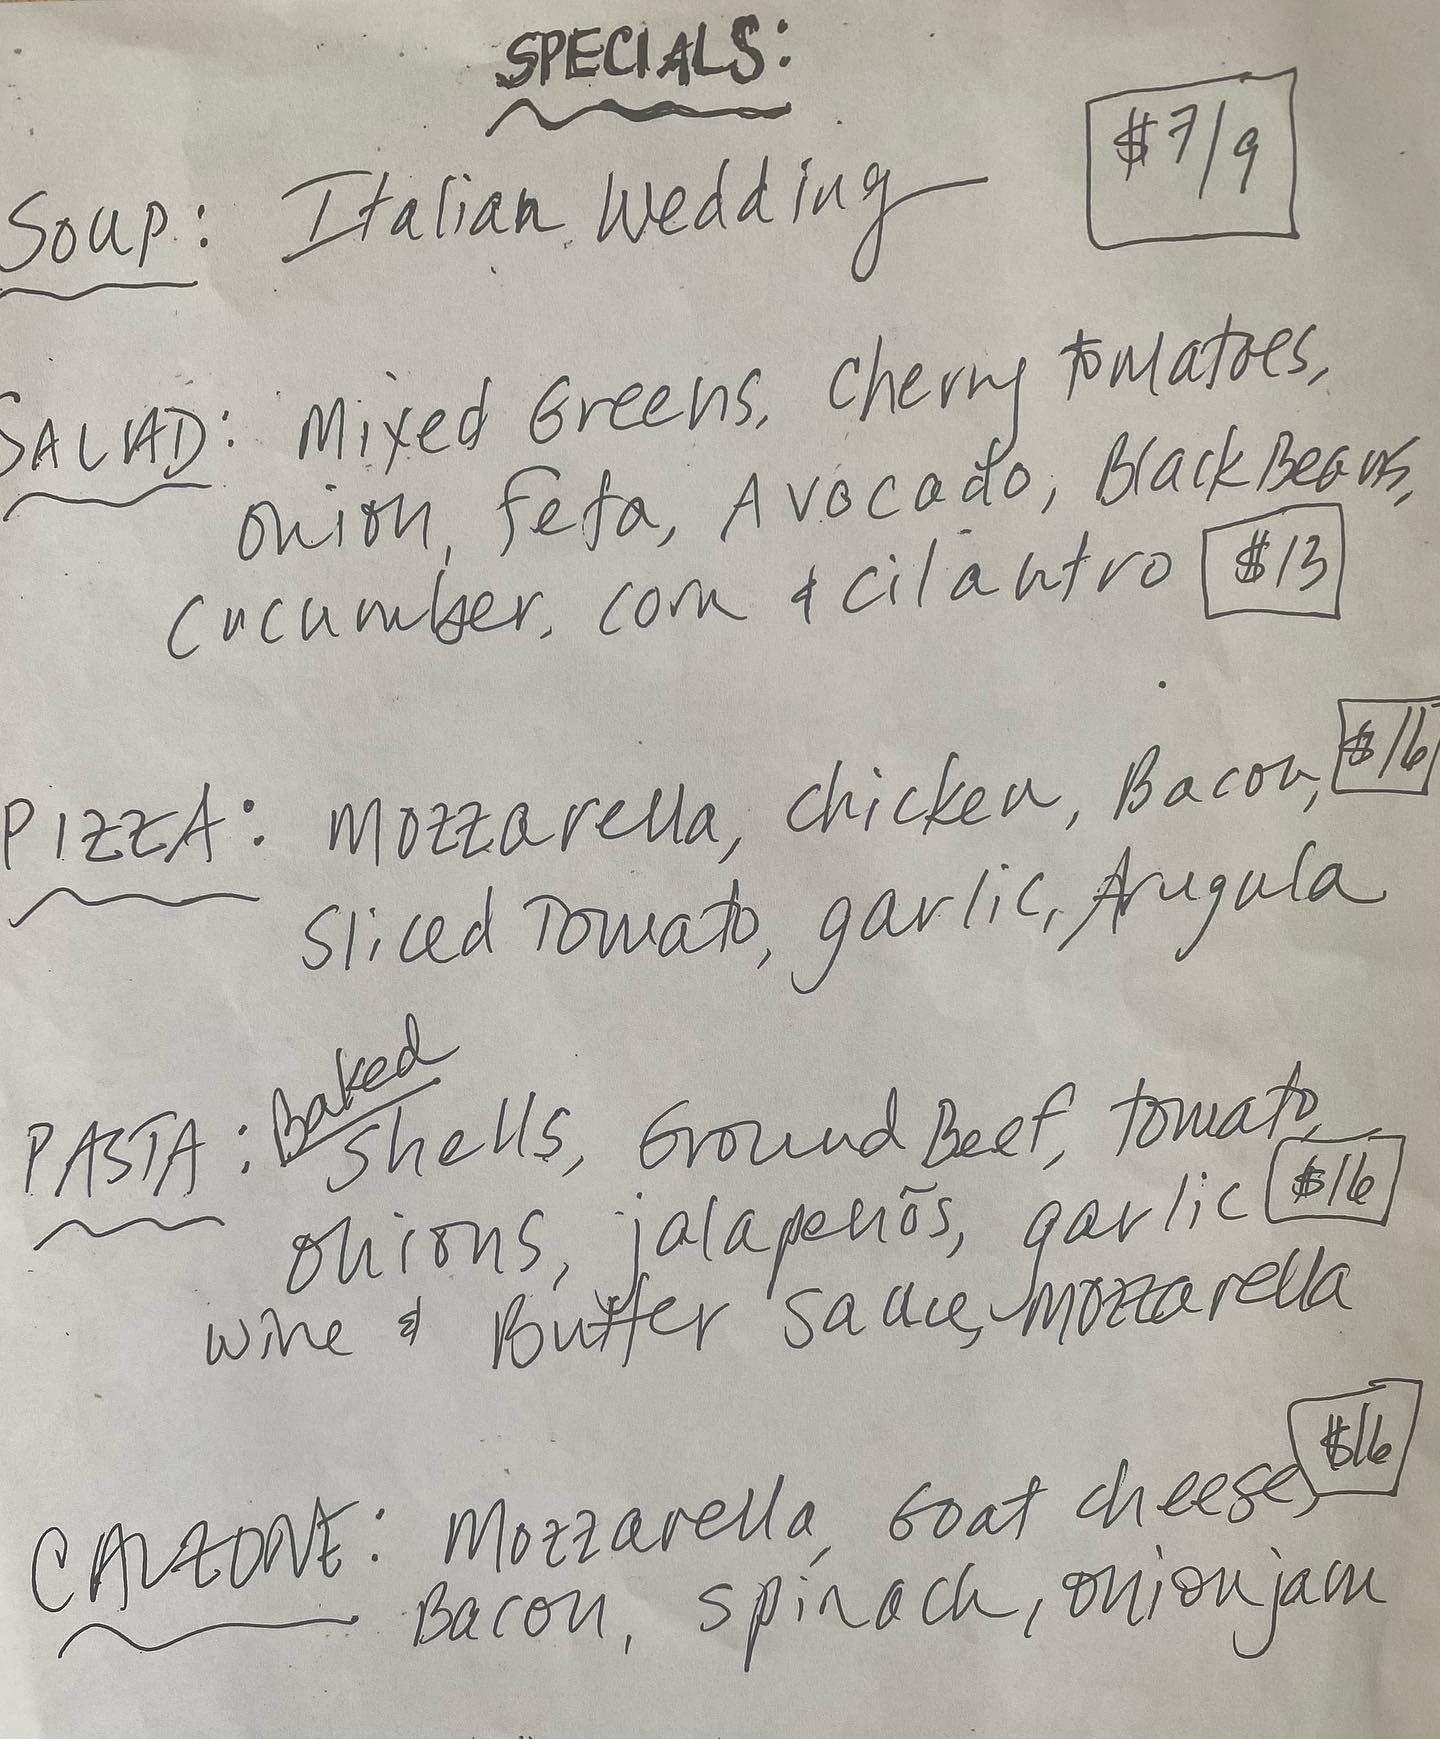 SPECIALS:
Soup: Italian Wedding $7/9
SALAD: Mixed Greens, Cherry tomatoes,
onion, feta, Avocado, Black Beans,
cucumber, corn & cilantro $13
PIZZA: Mozzarella, chicken, Bacon, $16
Sliced Tomato, garlic, Arugula
PASTA: Baked shells, Ground Beef, tomato,
onions, jalapenõs, garlic $16
wine & Butter sauce, Mozzarella
CALZONE: Mozzarella, Goat cheese, $16
Bacon, spinach, onion jam